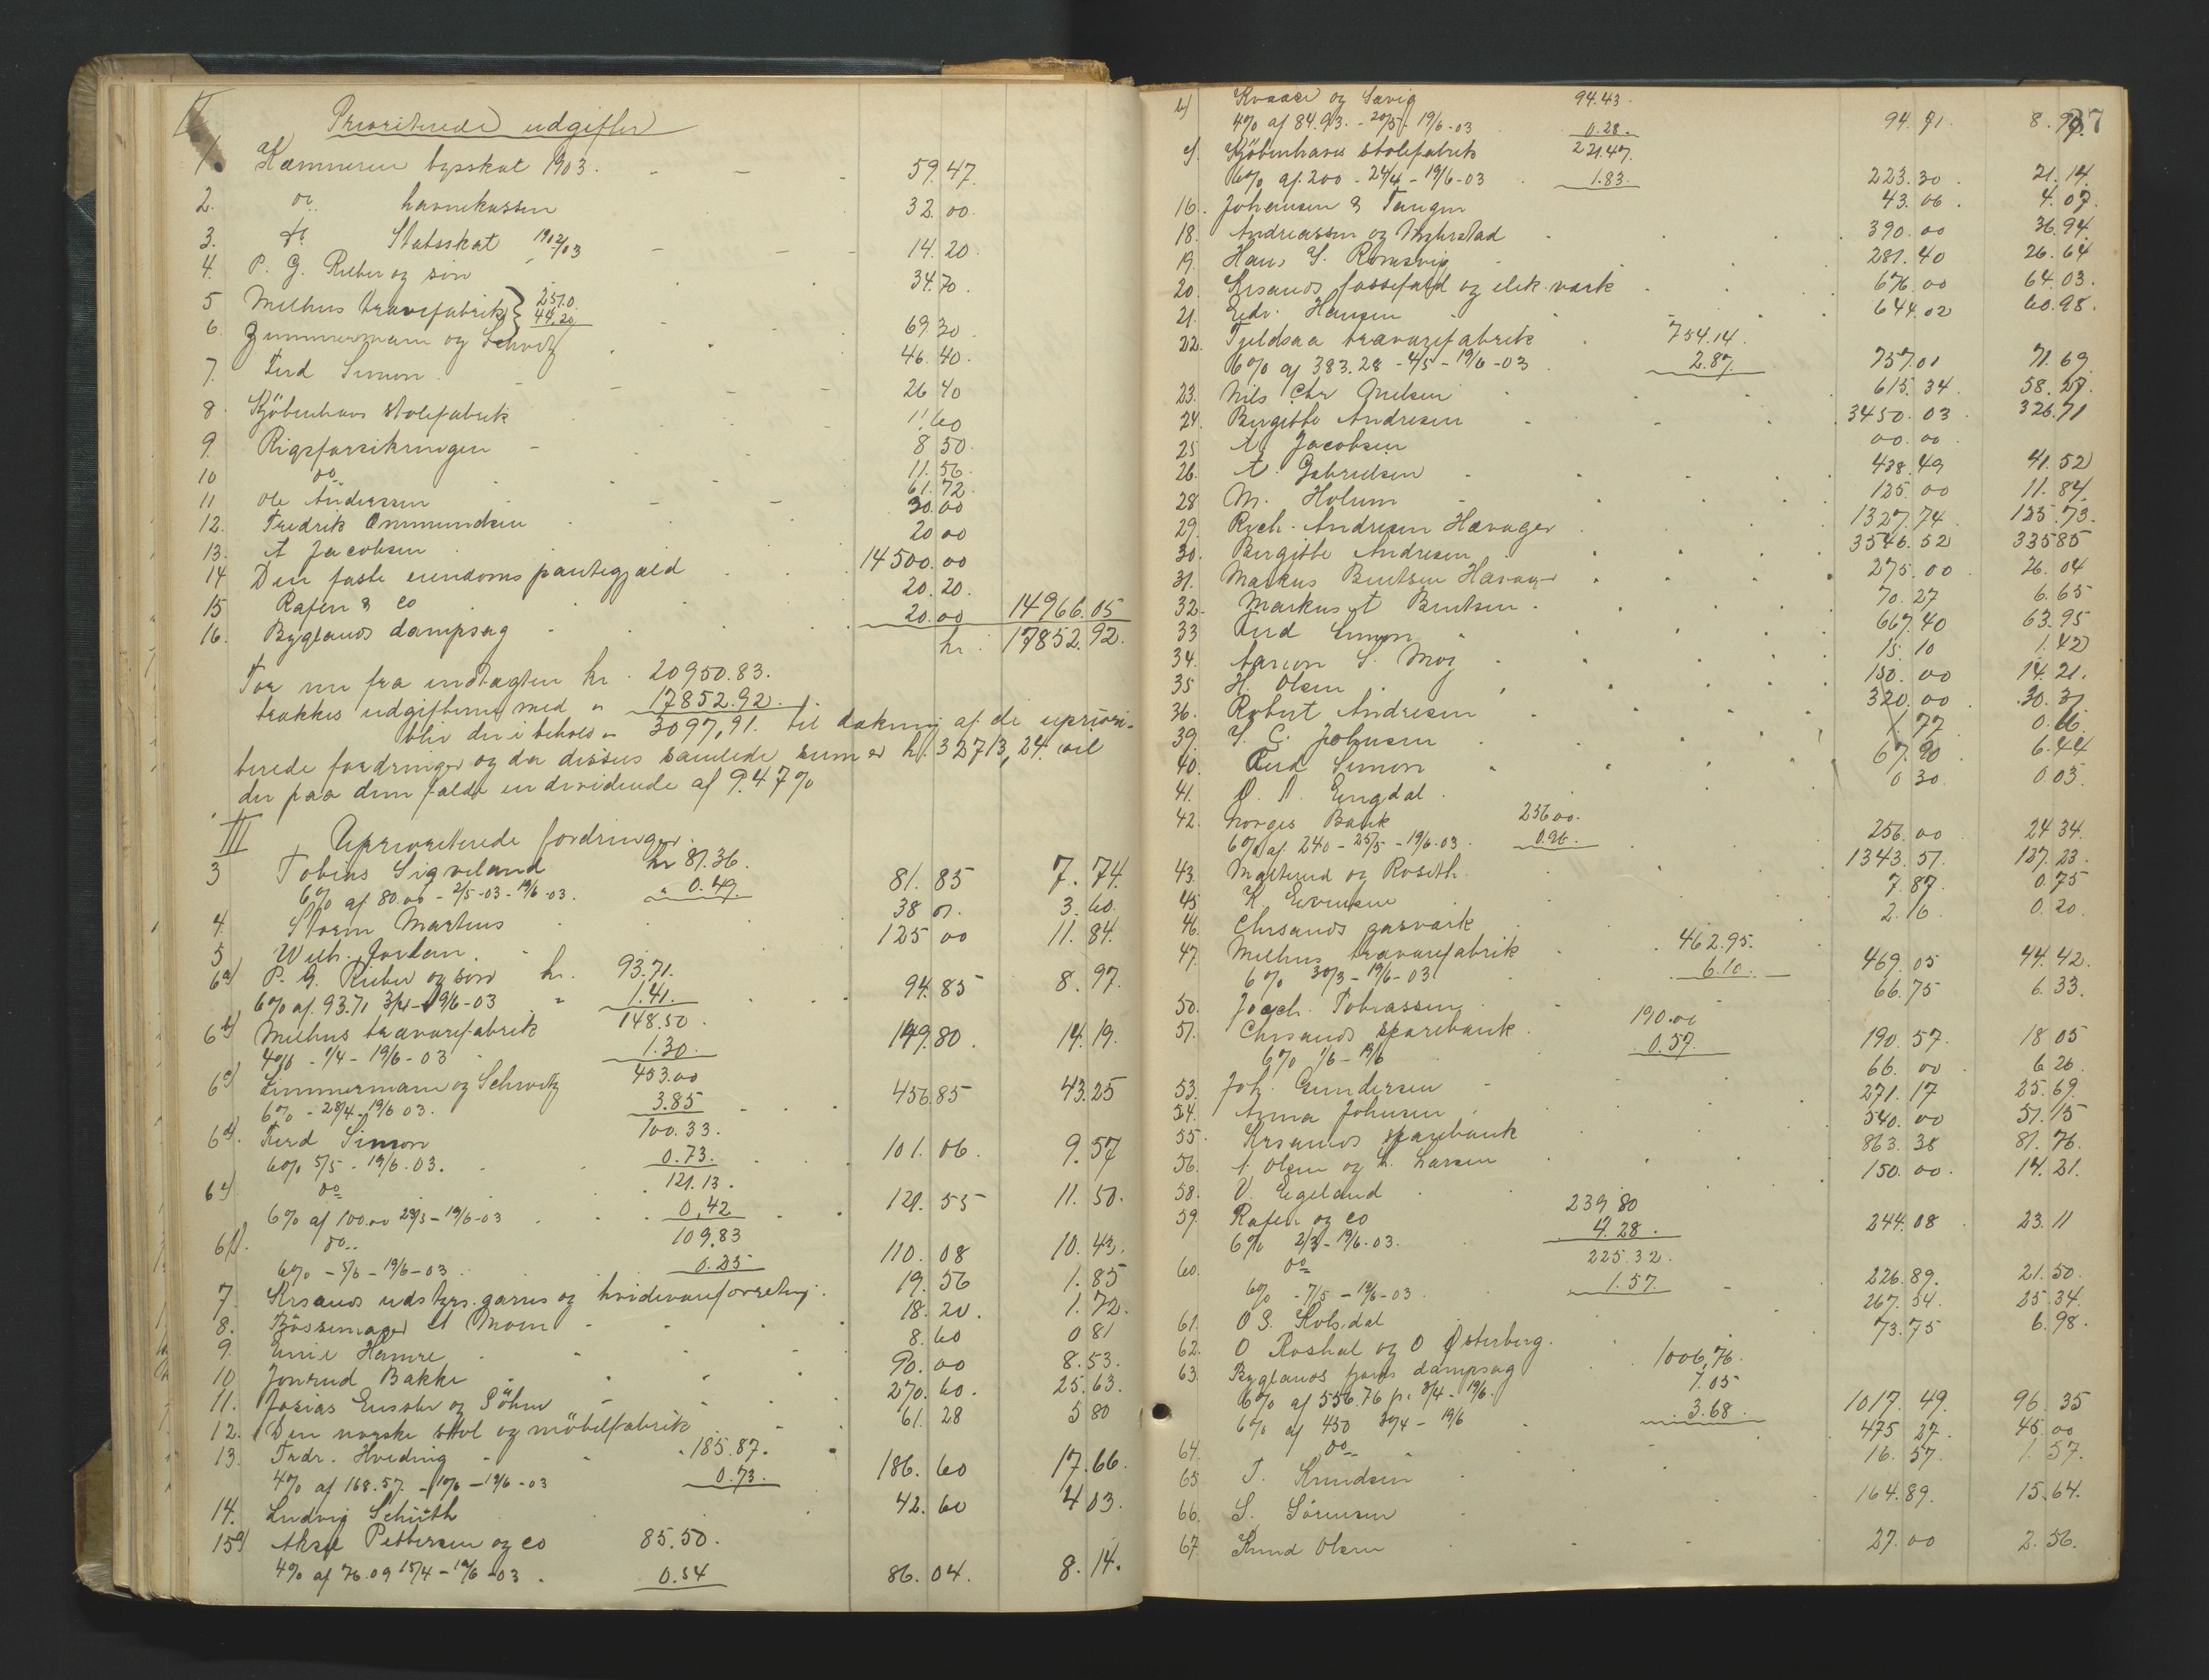 II
Prioriterede udgifter
1. Kæmneren byskat 1903. 59.47.
2. do havnekassen 32.00.
3. do Statsskat 1902/03 14.20.
4. P. G. Rieber og søn 34.70.
5 Melhus træværefabrik } 25.10
44.20 69.30
6. Zimmermann og Schvitz 46.40.
7. Ferd Simon 26 40
8. Kjöbenhavns stolefabrik 1.60
9. Rigsforsikringen 8 50.
10 do 11.56.
11 Ole Anderssen 61.72.
12. Fredrik Ommundsen 30.00
13. A Jacobsen 20 00
14 Den faste eiendoms pantegjæld 14500.00
15 Rafen & co 20.20.
16. Byglands dampsag 20.00 14966.05
kr. 17852.92.
Før nu fra indtægten kr. 20950.83.
trækkes udgifterne med " 17852.92.
blir der i behold " 3097,91. til dækning af de upriori-
terede fordringer og da disses samlede sum er kr. 32713,24. vil
der paa dem falde en dividende af 9.47%
III Uprioriterede fordringer.
3 Tobias Sigveland kr 81.36.
6% af 80.00 - 2/5-03 - 19/6-03. " 0.49. 81.85 7.74.
4. Storm Martens 38 01. 3.60.
5 Wilh. Jordan. 125 00 11.84.
6a) P. G. Rieber og søn kr. 93.71.
6% af 93.71 3/4 - 19/6-03 " 1.41. 94.85 8.97.
6b) Melhus trævarefabrik 148.50.
4% - 1/4 - 19/6-03 1.30. 149.80. 14.19.
6c) Zimmermann og Schvitz 453.00
6% - 28/4 - 19/6 03. 3.85 456.85 43.25
6d). Ferd Simon 100.33.
6% 5/5 - 19/6.03. 0.73. 101.06. 9.57
6e) do 121.13.
6% af 100.00 23/5 - 19/6-03 0,42 121.55 11.50.
6f). do.. 109.83
6% - 5/6 - 19/6-03. 0.25 110.08 10.43.
7. Krsands udstyrs. garns og hvidevareforretning. 19.56 1.85
8. Bössemager A Moen 18.20. 1.72.
9. Emie Hamre 8.60 0 81
10 Jonrud Bakke 90.00 8.53.
11. Josias Eissler og Söhne 270.60. 25.63.
12. Den norske stol og möbelfabrik 61.28 5 80
13. Fredr. Hveding 185.87.
4% af 168.57. - 10/5 - 19/6-03 0.73. 186.60 17.66.
14. Ludvig Schüth 42.60 4 03.
15a) Aksel Pettersen og co 85.50.
4% af 76.09 15/4 - 19/6-03. 0.54 86.04. 8.14.
37
b) Kvaase og Sævig 94.43.
4% af 84.93. - 20/5 - 19/6-03 0.28. 94.71 8.97.
c) Kjöbenhavns stolefabrik 221.47.
6% af 200 - 24/4 - 19/6-03 1.83. 223.30. 21.14.
16. Johansen & Tangen 43.06. 4.07.
18. Andreassen og Myhrstad 390.00 36.94.
19. Hans S. Romsvig 281.40 26.64
20. Krsands fossefald og elek. værk 676.00 64.03.
21. Edv. Hansen 644.02 60.98.
22. Fjeldsaa trævarefabrik 754.14.
6% af 383.28 - 4/5 - 19/6-03. 2.87. 757.01 71.69
23. Nils Chr Nielsen 615.34. 58.27.
24. Birgitte Andresen 3450.03. 326.71
25 A. Jacobsen 00.00.
26. A. Gabrielsen 438.49 41.52
28 M. Holum 125.00 11.84.
29. Rich. Andresen Havager 1327.74. 125.73.
30. Birgitte Andresen 3546.52 33585
31. Markus Bentsen Havager 275.00. 26.04
32. Markus A Bentsen 70.27 6.65
33 Ferd Simon 667.40 63.95
34. Aanon S. Moy 15.10 1.42
35 H. Olsen 150.00 14.21.
36. Robert Andresen 320.00. 30.31
39. S. C. Johnsen 1.77 0.16.
40. Ferd Simon 67.90 6.44
41. O. A. Engdal 0 30. 0 03.
42. Norges Bank 256.00.
6% af 240 - 25/5 - 19/6-03. 0.96. 256.00. 24 34.
43. Malterud og Roseth. 1343.57. 127.23.
45. K. Evensen 7.87. 0.75
46. Chrsands gasværk 2.16. 0.20.
47. Melhus trævarefabrik 462.95.
6% 30/3 - 19/6-03. 6.10. 469.05 44.42.
50. Joach. Tobiassen 66.75 6.33.
51. Chrsands sparebank. 190.00
6% 1/6 - 19/6 0.57. 190.57. 18 05
53. Joh. Gundersen 66.00. 6 26.
54. Anna Johnsen 271.17 25.69.
55. Krsands sparebank 540.00 51.15
56. A. Olsen og L. Larsen 863.38 81.76.
58. V. Egeland 150.00. 14.21.
59. Rafen og co 239 80
6% 2/3 - 19/6-03. 4.28. 244.08. 23.11
60. do 225.32.
6% - 7/5 - 19/6-03. 1.57. 226.89. 21.50.
61. O S. Kolsdal 267.54. 25.34.
62. O Roshal og O Østerberg. 73.75 6.98.
63. Byglands fjords dampsag 1006,76.
6% af 556.76 pr. 3/4 - 19/6. 7.05
6% af 450 30/4 - 19/6 3.68. 1017.49. 96.35
64. do 475 27. 45.00
65 T. Knudsen 16.57. 1.57.
66. S. Sörensen 164.89. 15.64.
67. Knud Olsen 27.00 2.56.